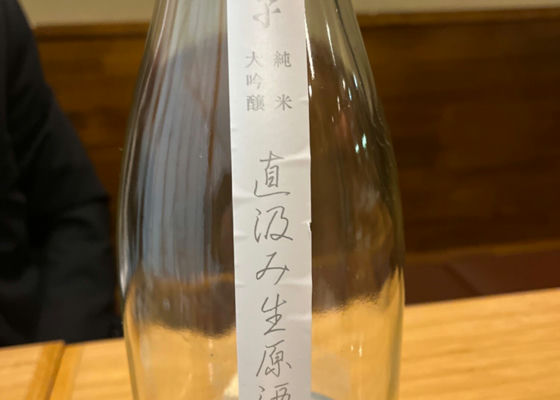 純米
大吟醸
直汲み生原酒